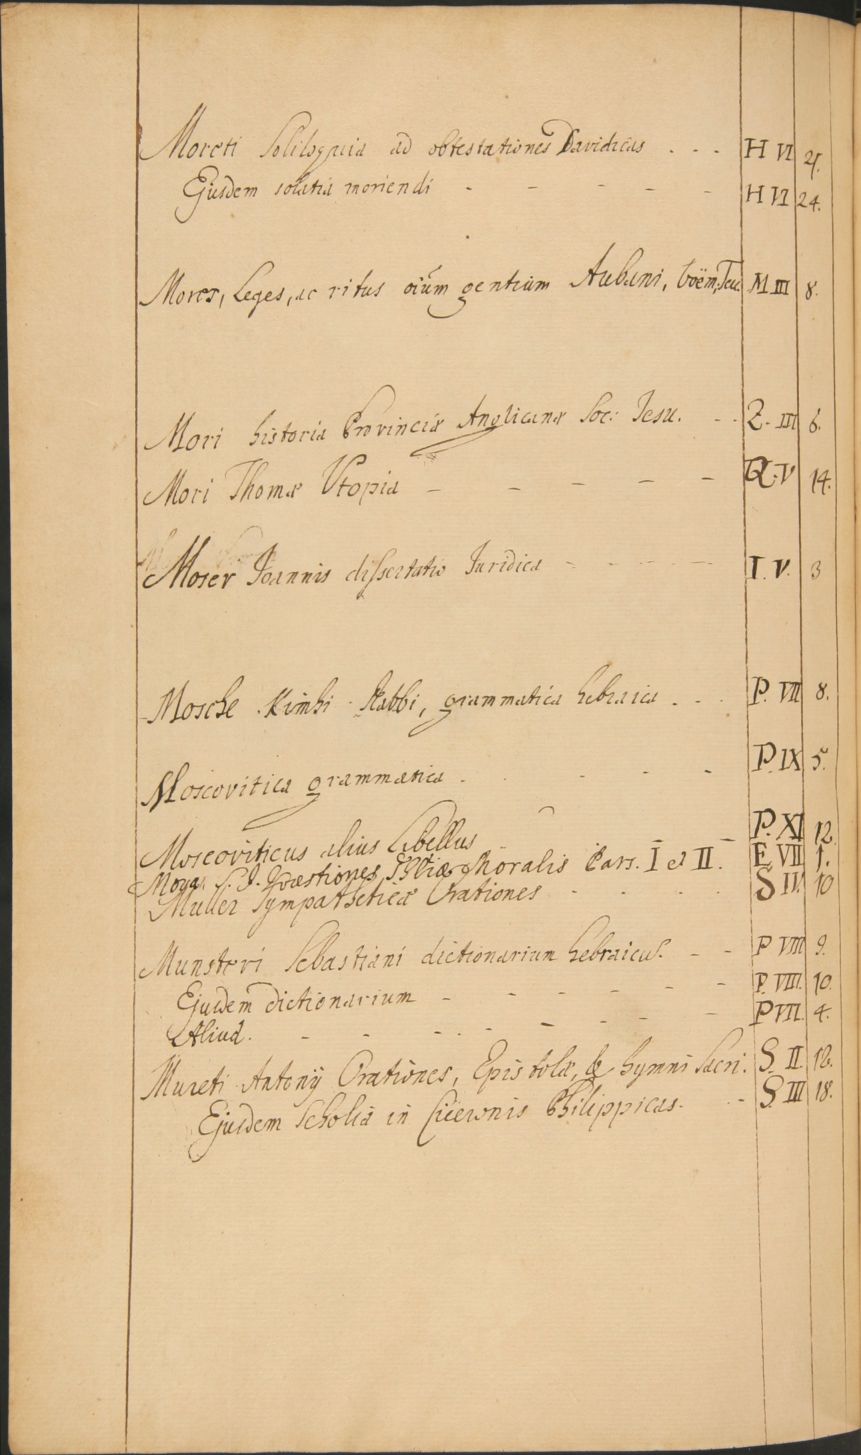 Moreti Soliloquia ad obtestationes Davidicas . . . H VI
Ejusdem solatia moriendi - - - - - H VI 24.
Mores, Leges, ac ritus oium gentium Aubani, boëm, Teu. M III 8.
Mori historia Provinciæ Anglicanæ Soc: Jesu. - - Z. III 6.
Mori Thomæ Vtopia - - - - - Q. V 14.
Moser Joannis dissertatio Juridica - - - - - I. V. 3
Mosche Kimhi Rabbi, grammatica hebraica . . . P. VII 8.
Moscovitica grammatica . . - - - P. IX 5.
Moscoviticus alius Libellus - - - P. XI 12
Moya S. J. Quæstiones Moralis Pars. I et II. E VII 1.
Muller Sympatheticæ Orationes - - - . S IV. 10
Munsteri Sebastiani dictionarium hebraicu. - - P VIII 9.
Ejusdem dictionarium - - - - - - P. VIII. 10.
Aliud. - - - - - - - P VII. 4.
Mureti Antonij Orationes, Epistolæ, & hymni Sacri. S. II. 12.
Ejusdem Scholia in Ciceronis Philippicas. - S. III 18.